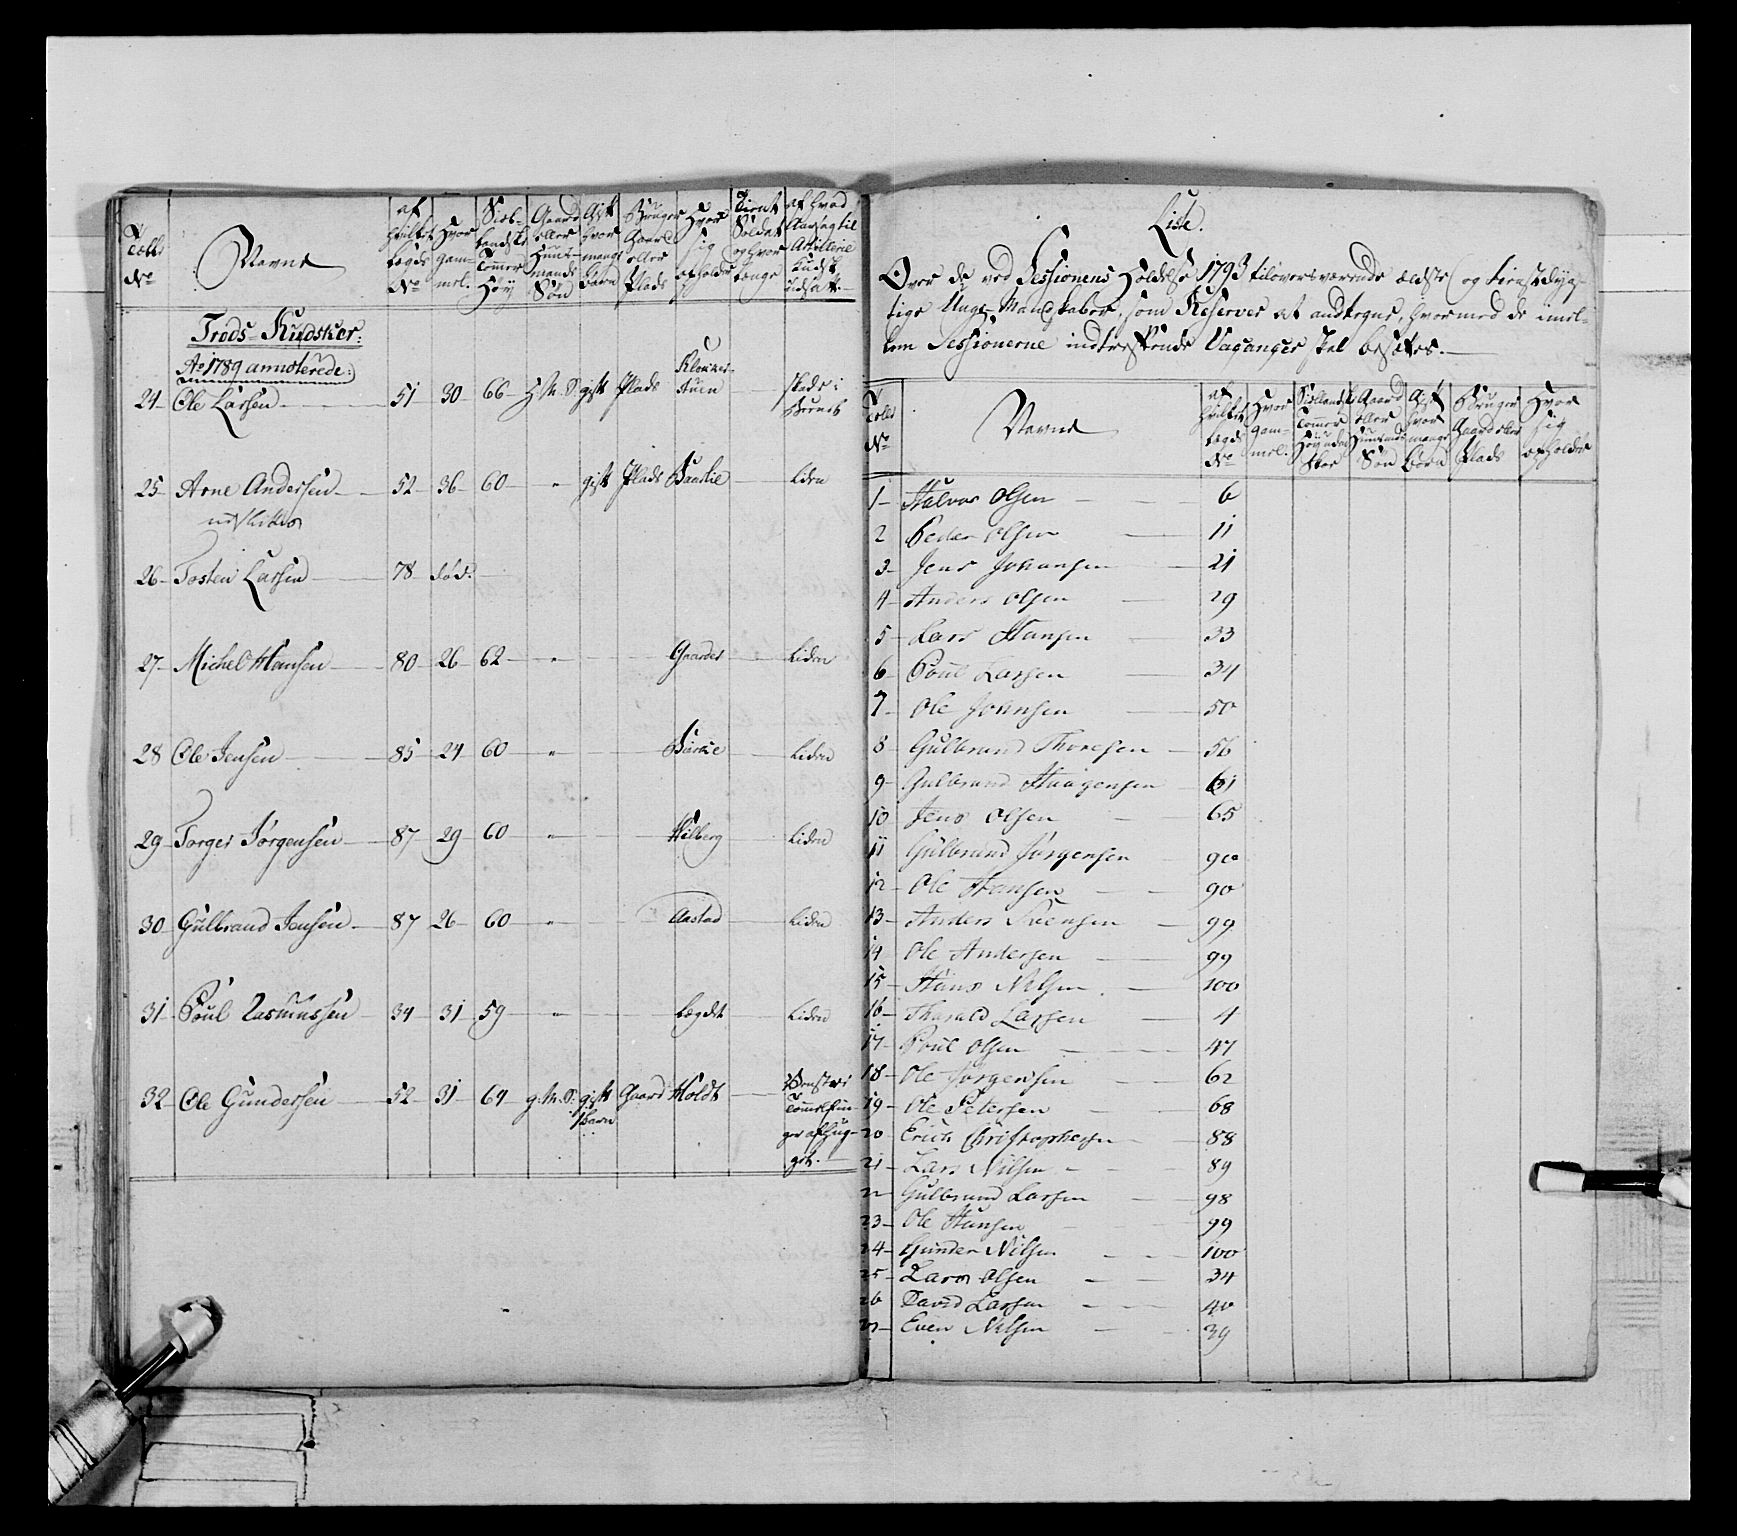 Tolls No
Navne
af hvilket Lægds No
Hvor gammel.
Siælandske Tommer Høy
Gaard eller Huusmands Søn
Gift hvor mange børn
Bruger Gaard eller Plads
Hvor sig opholder
Tient Soldat og hvor længe
af hvad Aarsag til Artillerie Kudsk udsatt.
Trods-Kudsker:
Ao 1789 annoterede:
24- Ole Larsen - 51 30 66 H. M. S. gift Plads
25- Arne Andersen 52 36 60 " gift Plads Baakie liden
26- Tosten Larsen 78 død.
27- Michel Hansen 80 26 62 " Gaarder liden
28 Ole Jensen 85 24 60 " liden
29- Torger Jørgensen 87 29 60 " Wilberg liden
30 Gulbrand Jensen 87 26 60 " Aastad liden
31- Poul Rasmussen 34 31 59 " Lægdet liden
32- Ole Gundersen 52 31 64 g. M. S. gift 1 barn Gaard Holdt
Liste.
Over de ved Sessionens Holdelse 1793 tiloversværende ældste og tienstdyg-
tige Unge Mandskaber, som Reserver at andtegne, hvormed de imel-
lem Sessionerne indtreffende Vacancer skal besættes.
Tolls No
Navne
af hvilket Lægds No
Hvor gammel.
Siællandske Tommer Høy uden Skoe
Gaard eller Huusmands Søn
Gift hvor mange børn
Bruger Gaard eller Plads
Hvor sig opholder
1- Halvor Olsen - 6
2 Peder Olsen 11
3- Jens Johansen 21
4- Anders Olsen 29
5- Lars Hansen 33
6- Poul Larsen 34
7- Ole Johnsen 50
8- Gulbrand Thoresen 56
9- Gulbrand Haagensen 61
10 Jens Olsen 65
11 Gulbrand Jørgensen 90
12- Ole Hansen 90
13- Anders Svensen 99
14 Ole Andersen 99
15- Hans Nilsen 100
16- Tharald Larsen 4
17- Poul Olsen 47
18- Ole Jørgensen 62
19- Ole Petersen 68
20 Erich Christophersen 88
21- Lars Nilsen 89
22 Gulbrand Larsen 98
23- Ole Hansen 99
24- Gunder Nilsen 100
25- Lars Olsen 34
26 David Larsen 40
27- Even Nilsen 39